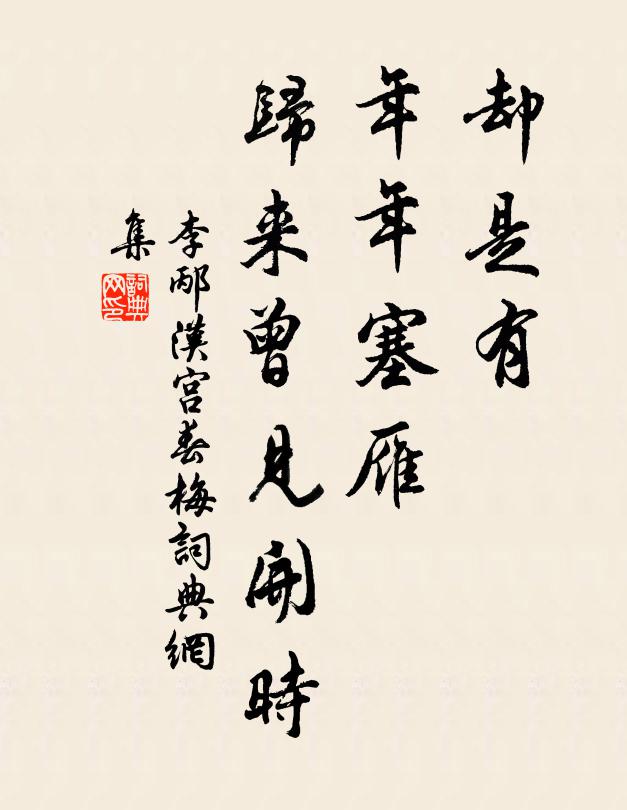 却是有
年年塞雁
歸来曾見開時
李邴漢宮春梅詞典網
集
詞典
网印